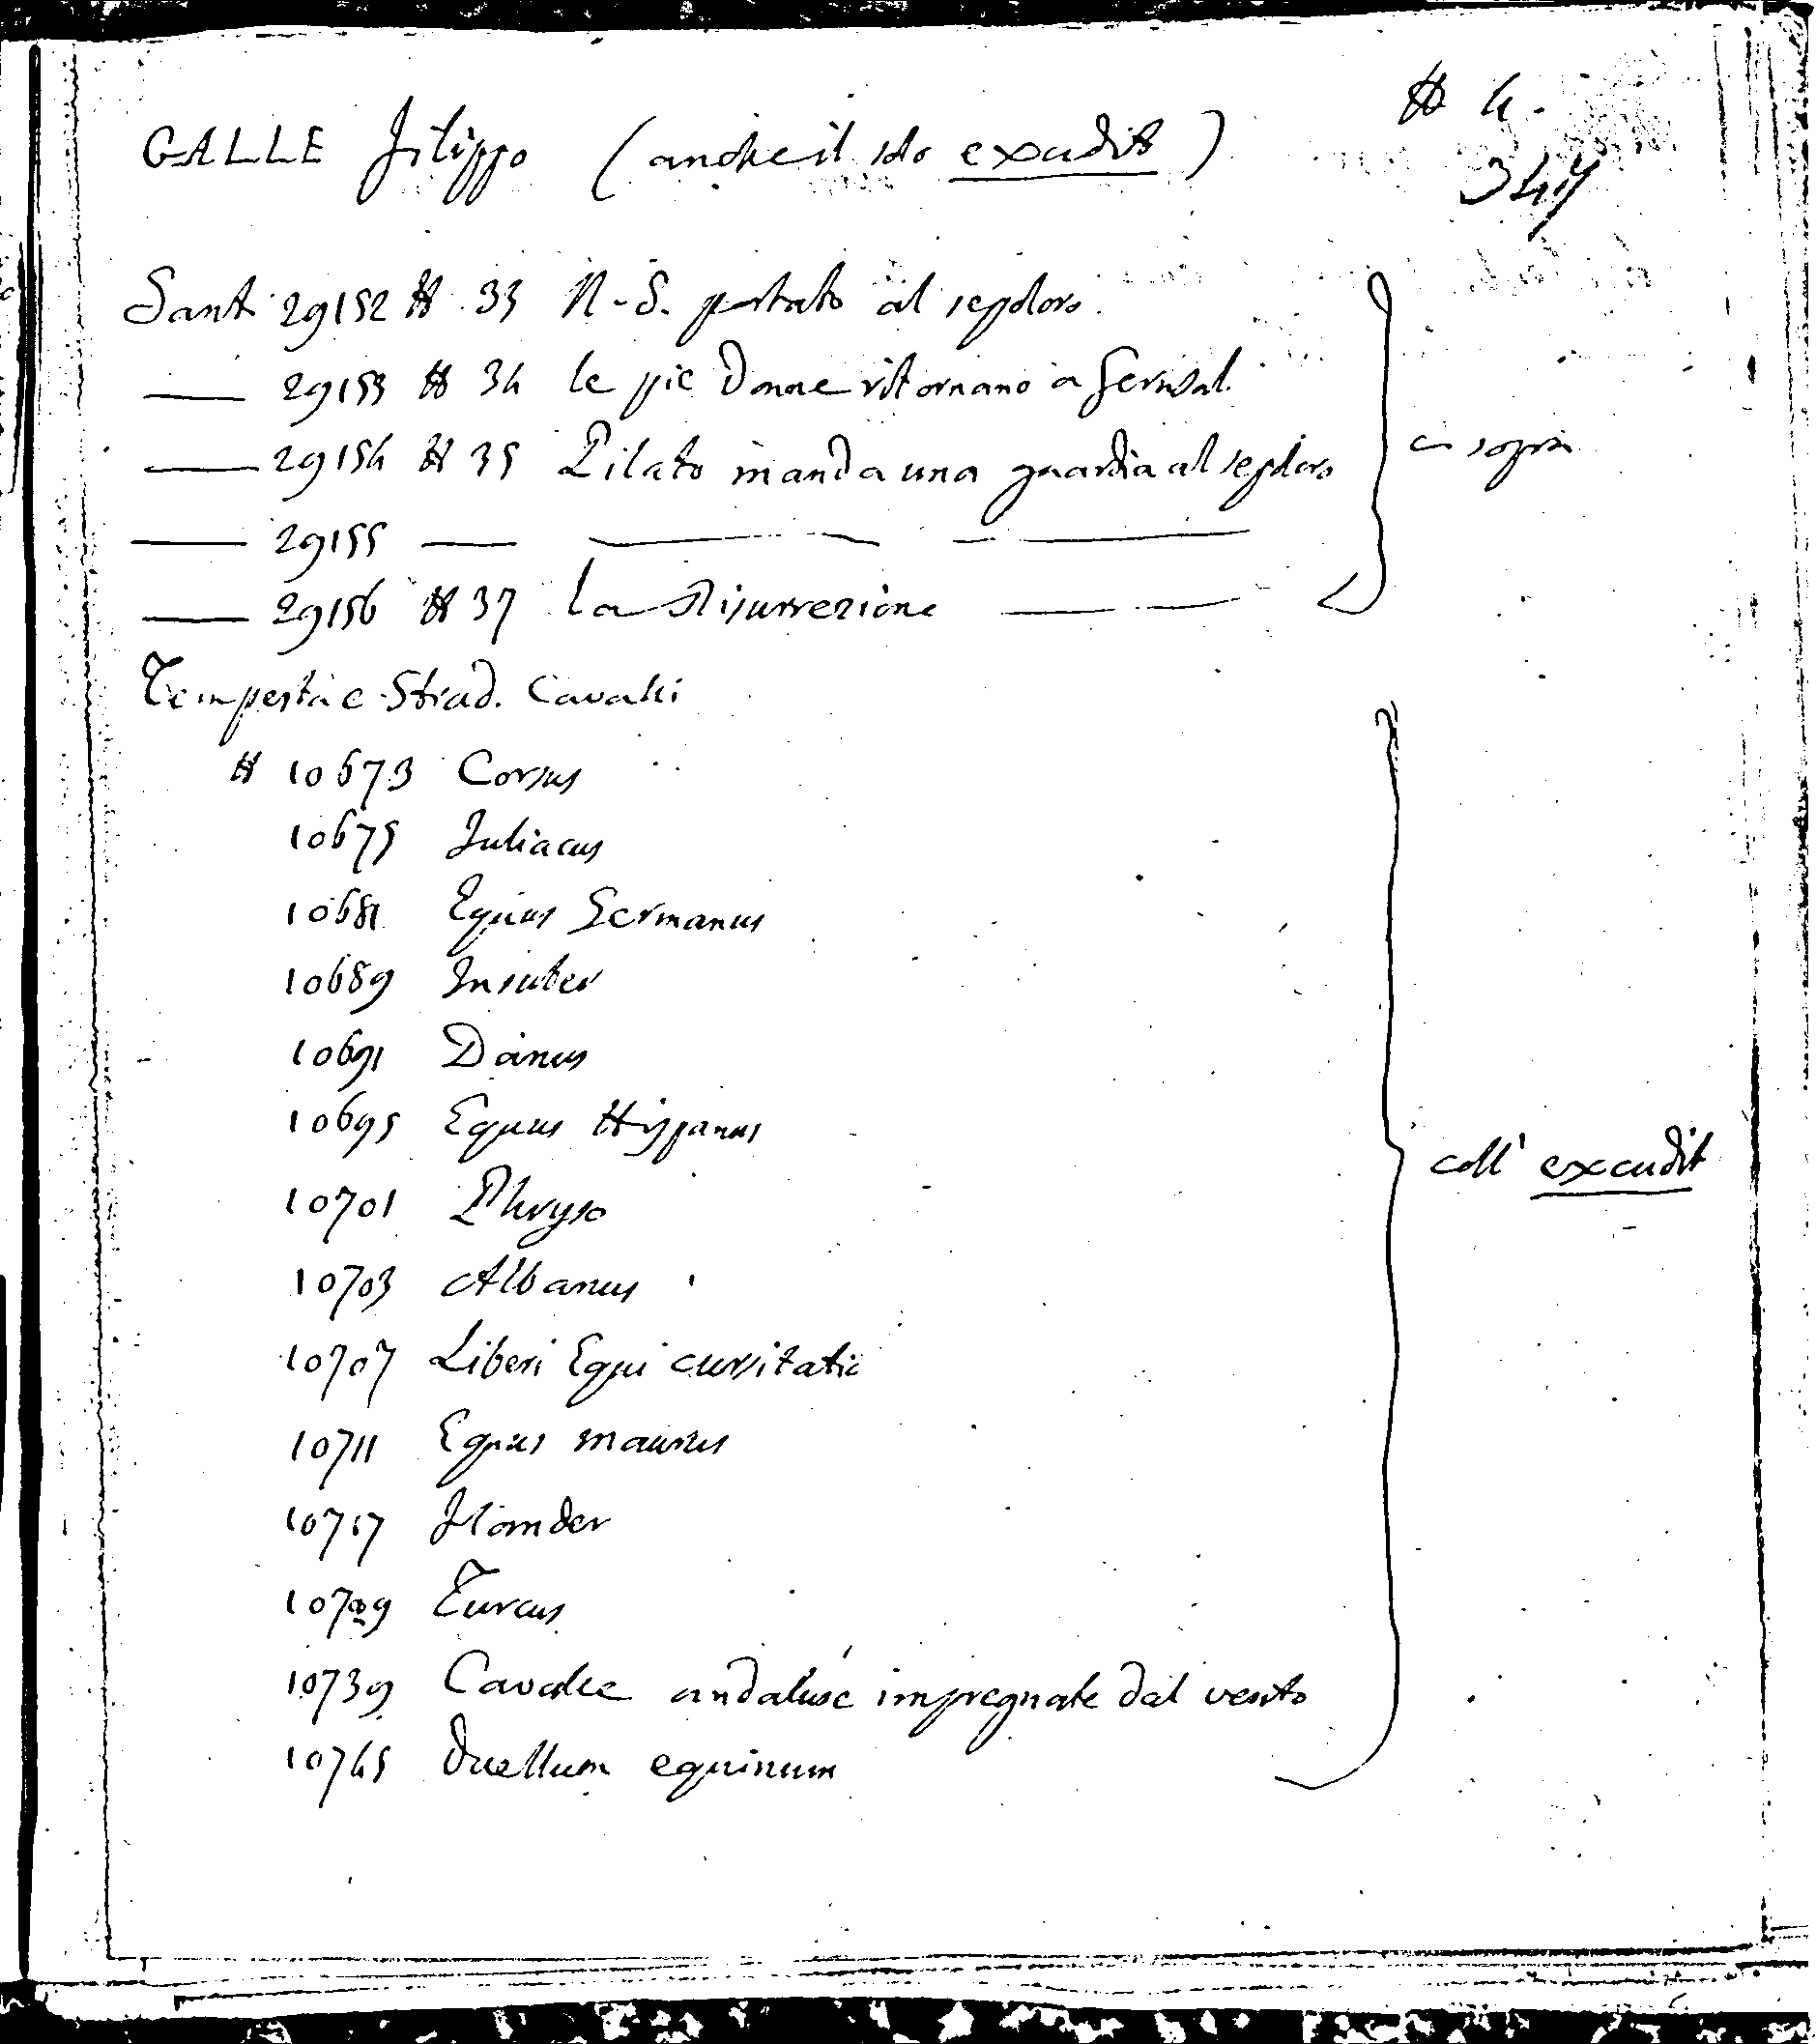 # 4.
GALLE Filippo (anche il solo excudit)
347
Santi 29152 # 33 N. S. portato al sepolcro
— 29153 # 34 le pie Donne ritornano a Gerusal.
— 29154 # 35 Pilato manda una guardia al sepolcro
c. sopra
— 29155 — — —
— 29156 # 37 la Risurrezione — —
Tempesta e Strad. Cavalli
# 10673 Corsus
10675 Juliacus
10681 Equus Germanus
10689 Insuber
10691 Danus
10695 Equus Hispanus
coll' excudit
10701 Phryso
10703 Albanus
10707 Liberi Equi cursitatio
10711 Equus maurus
10717 Flander
10709 Turcus
10739 Cavalle andaluse impregnate dal vento
10745 Duellum equinum